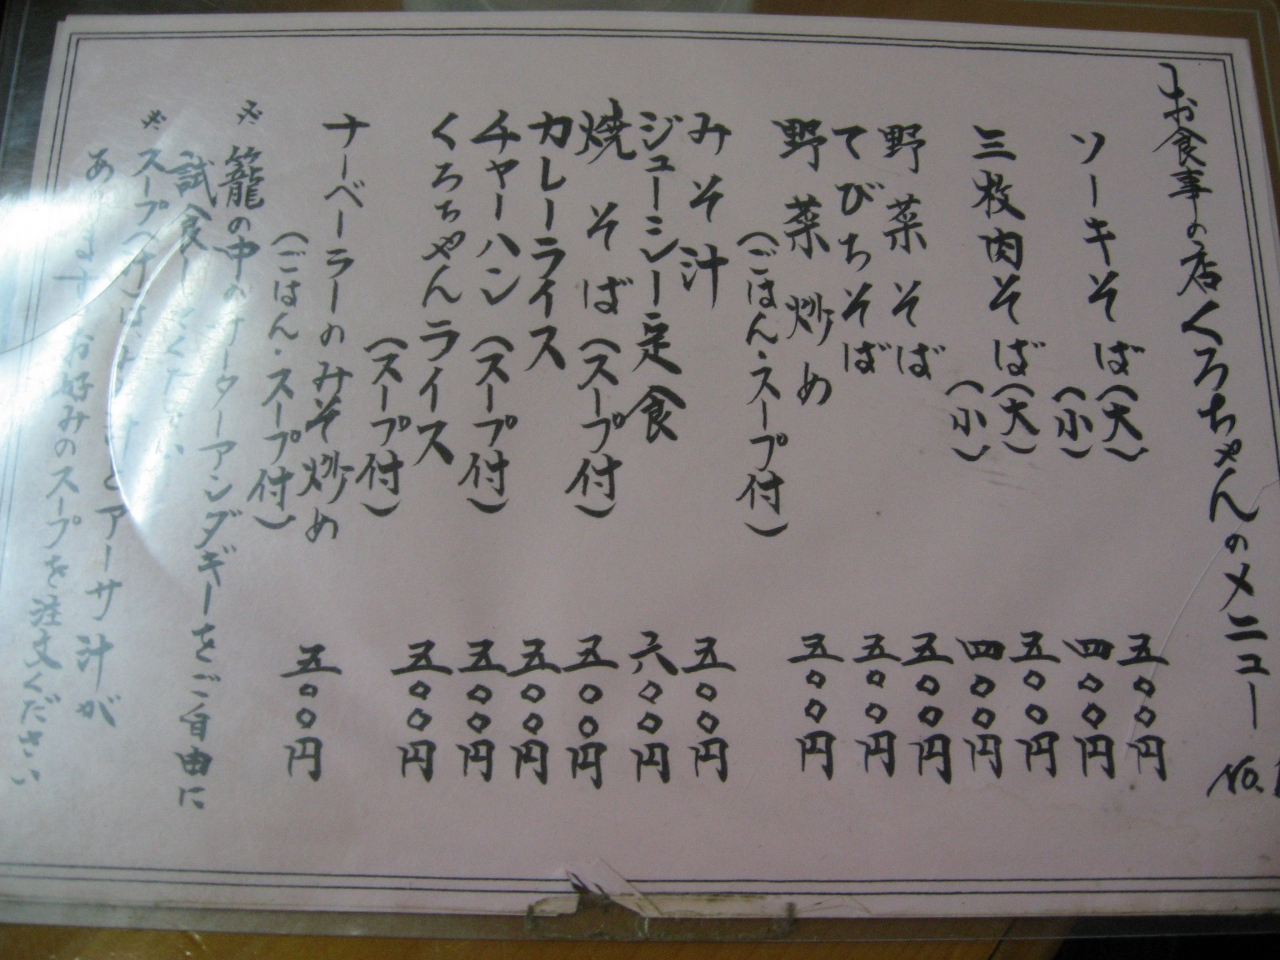 お食事の店くろちゃんのメニュー No.
ソーキそば(大) 五〇〇円
(小) 四〇〇円
三枚肉そば(大) 五〇〇円
(小) 四〇〇円
野菜そば 五〇〇円
てびちそば 五〇〇円
野菜炒め 五〇〇円
(ごはん・スープ付)
みそ汁 五〇〇円
ジューシー定食 六〇〇円
焼そば(スープ付) 五〇〇円
カレーライス 五〇〇円
チャーハン(スープ付) 五〇〇円
くろちゃんライス 五〇〇円
(スープ付)
ナーベーラーのみそ炒め 五〇〇円
(ごはん・スープ付)
※籠の中のサーターアンダギーをご自由に
試食してください
※スープ(付)は、そば汁とアーサ汁が
あります お好みのスープを注文ください